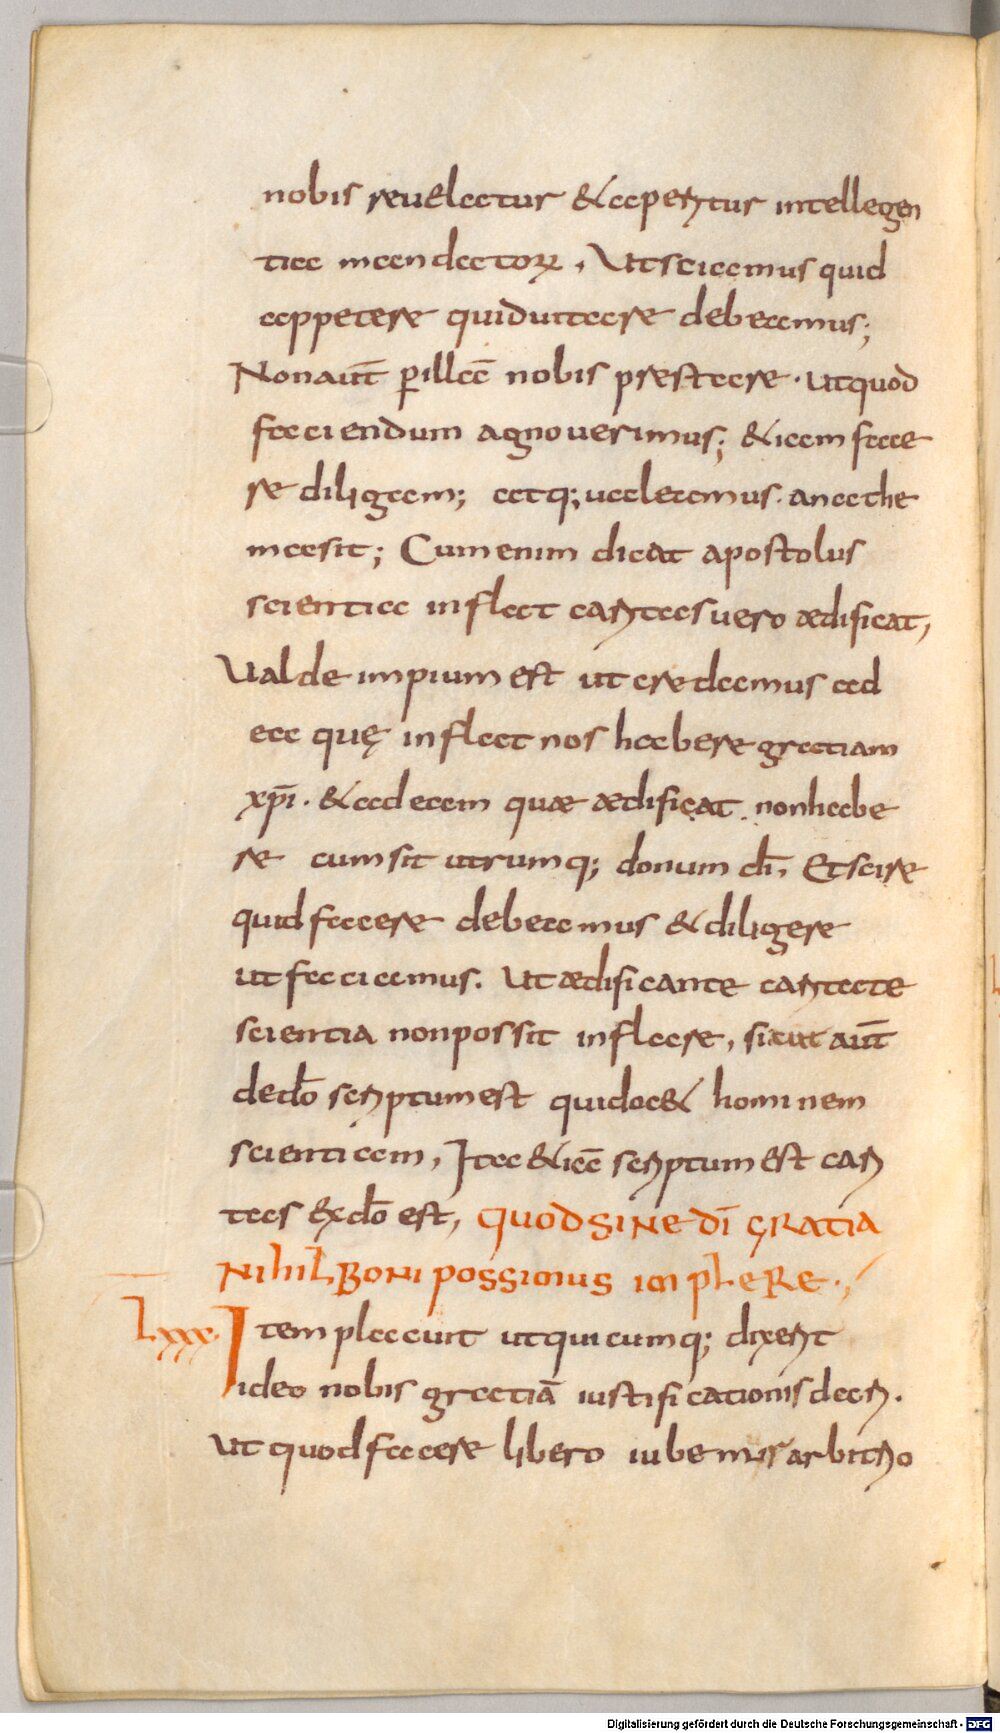 nobis reuelatur & aperitur intellegen
tia mandatorum, Ut sciamus quid
appetere quid uitare debeamus;
Non aut̄ ꝑ illā nobis prestare · ut quod
faciendum agnouerimus; & iam face
re diligam; atq; ualeamus · anathe
ma sit; Cum enim dicat apostolus
scientia inflat caritas uero ædificat,
Ualde impium est ut credamus ad
ea quę inflat nos habere gratiam
xp̄i · & ad eam quæ ædificat non habe
re cum sit utrumq; donum dī, Et scire
quid facere debeamus & diligere
ut faciamus. Ut ædificante caritate
scientia non possit inflare, sicut aut̄
de dō scriptum est qui doc& hominem
scientiam, Ita & iā scriptum est cari
tas ex dō est, QUOD SINE DĪ GRATIA
NIHIL BONI POSSIMUS IMPLERE.,
Lxxx. Item placuit ut quicumq; dixerit
ideo nobis gratiā iustificationis dari.
Ut quod facere libero iubemur arbitrio
Digitalisierung gefördert durch die Deutsche Forschungsgemeinschaft - DFG